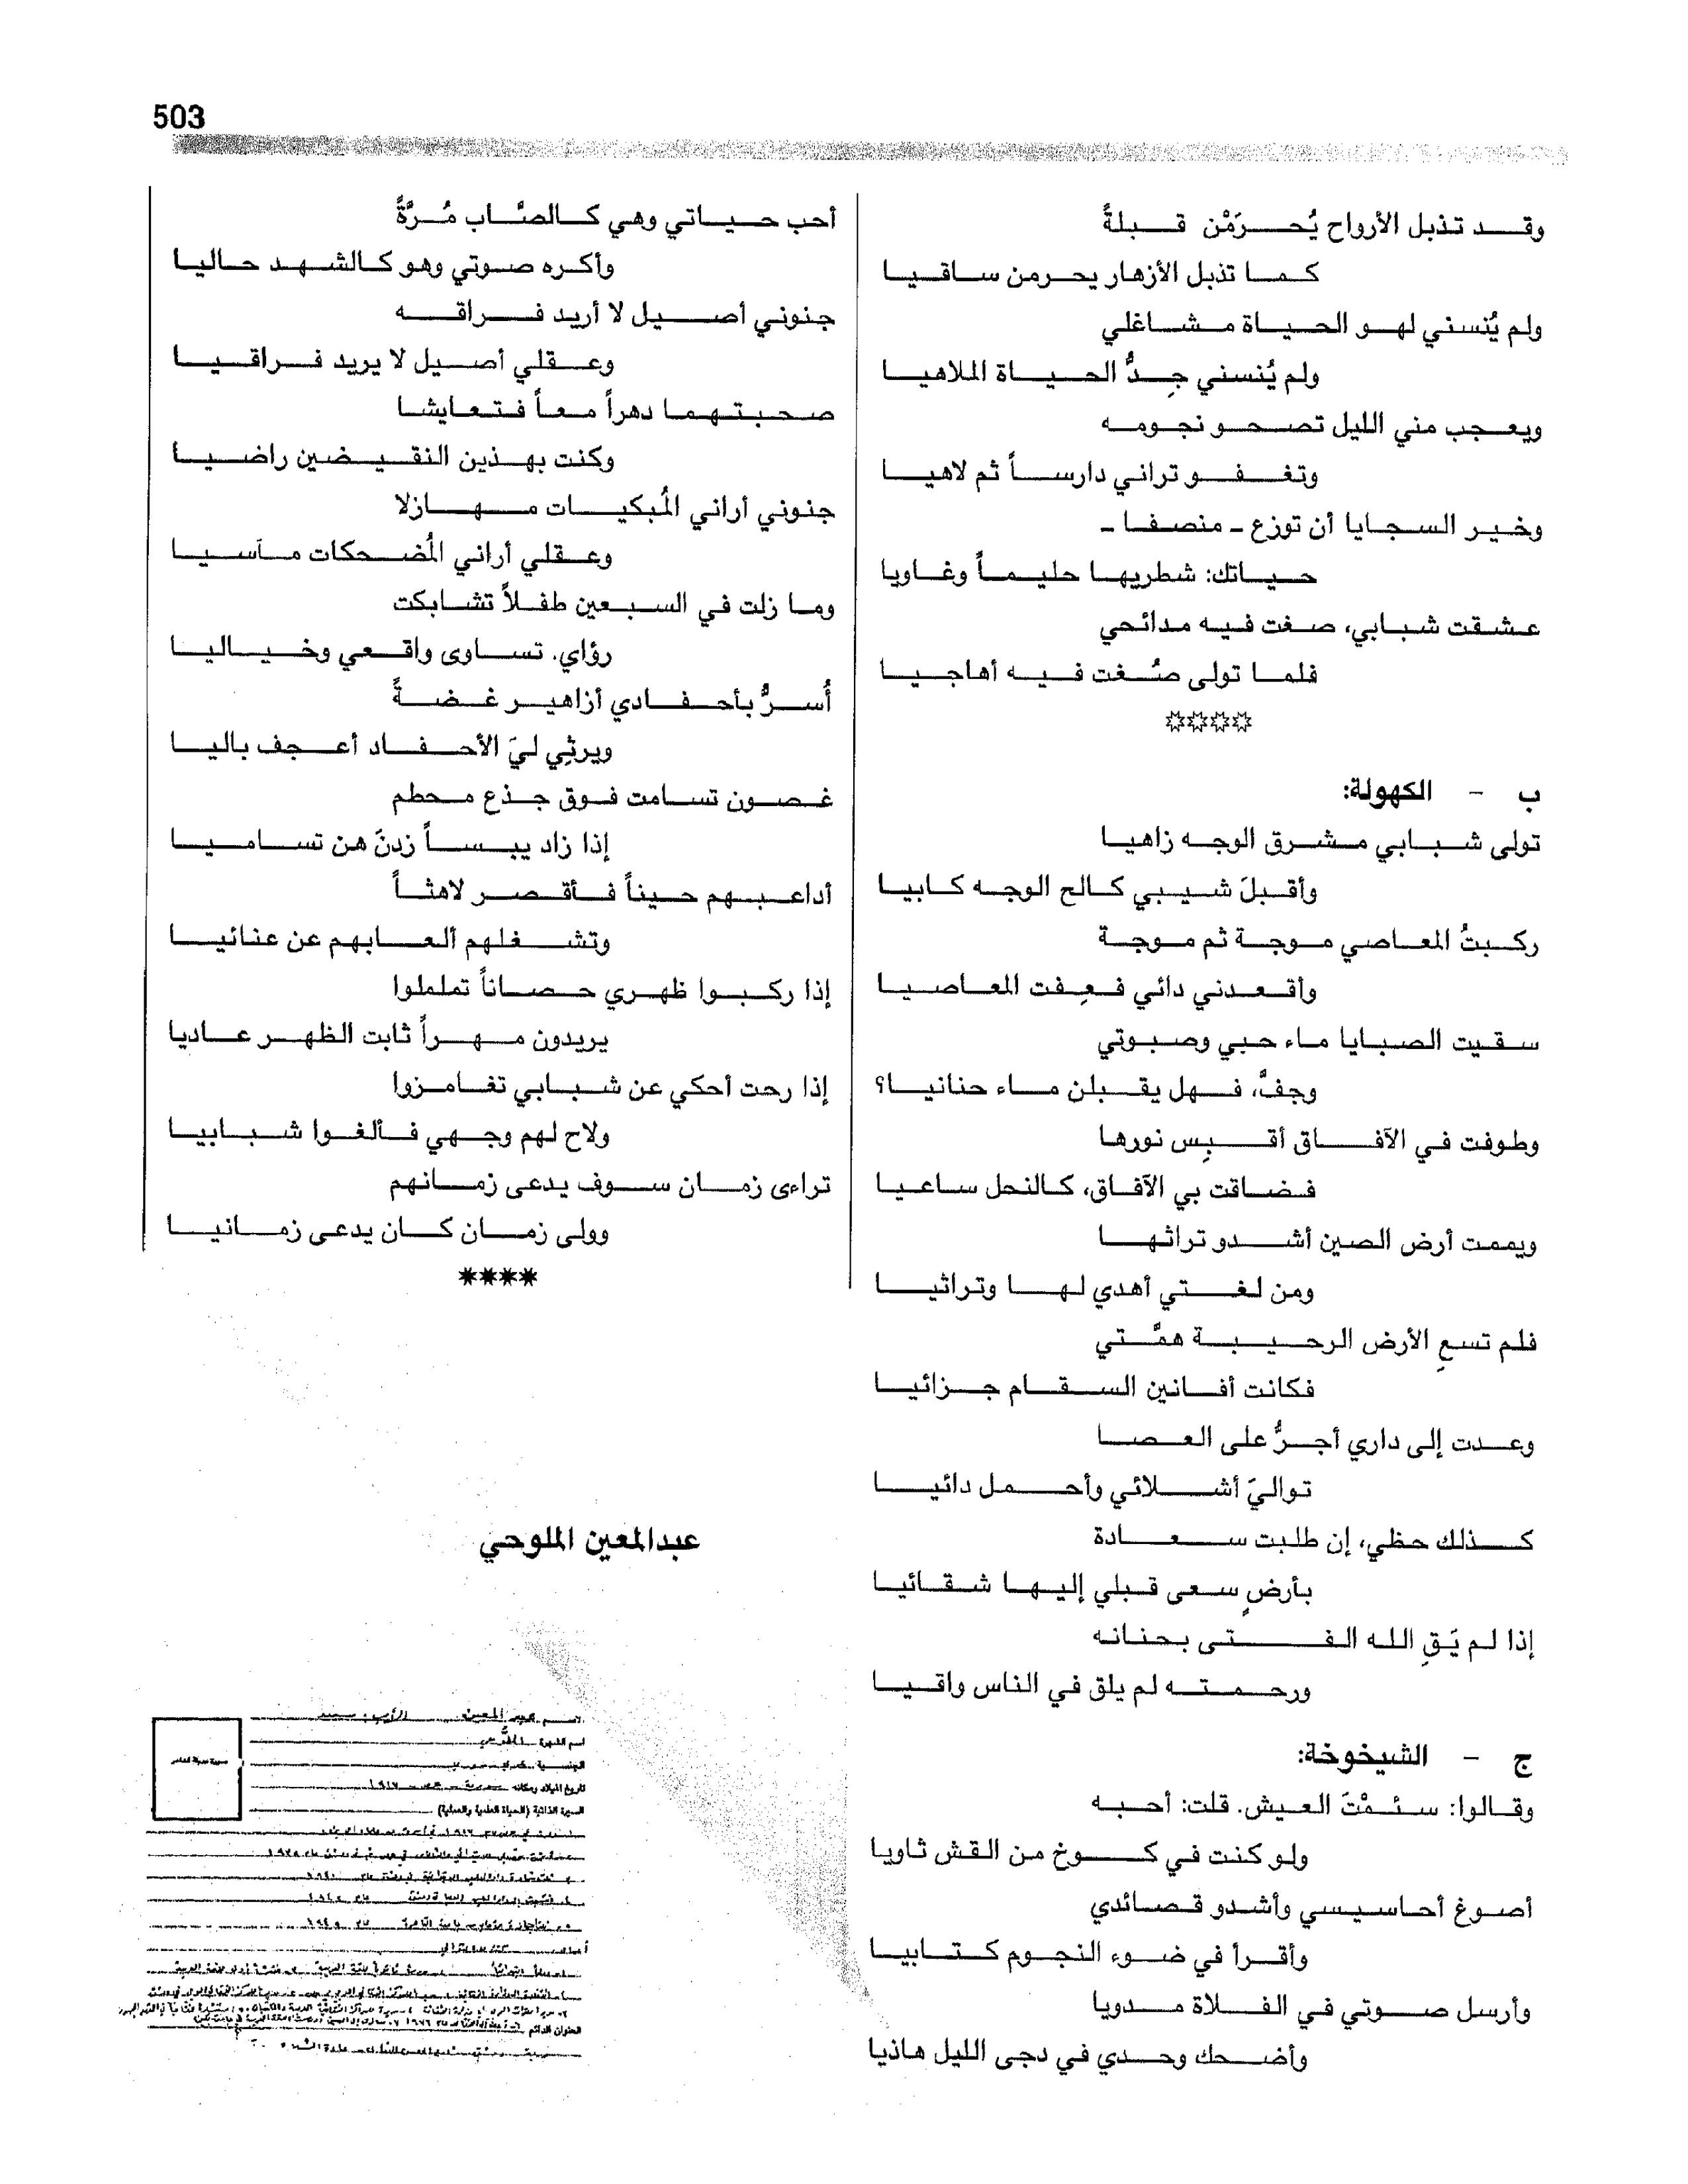 503
وقد تذبل الأرواح يُحرَمْن قبلةً
كما تذبل الأزهار يحرمن ساقيا
ولم يُنسني لهو الحياة مشاغلي
ولم يُنسني جِدُّ الحياة الملاهيا
ويعجب مني الليل تصحو نجومه
وتغفو تراني دارساً ثم لاهيا
وخير السجايا أن توزع ـ منصفا ـ
حياتك: شطريها حليماً وغاويا
عشقت شبابي، صغت فيه مدائحي
فلما تولى صُغت فيه أهاجيا
ب - الكهولة:
تولى شبابي مشرق الوجه زاهيا
وأقبلَ شيبي كالح الوجه كابيا
ركبتُ المعاصي موجة ثم موجة
وأقعدني دائي فعِفت المعاصيا
سقيت الصبايا ماء حبي وصبوتي
وجفَّ، فهل يقبلن ماء حنانيا؟
وطوفت في الآفاق أقبِس نورها
فضاقت بي الآفاق، كالنحل ساعيا
ويممت أرض الصين أشدو تراثها
ومن لغتي أهدي لها وتراثيا
فلم تسعِ الأرض الرحيبة همَّتي
فكانت أفانين السقام جزائيا
وعدت إلى داري أجرُّ على العصا
تواليَ أشلائي وأحمل دائيا
كذلك حظي، إن طلبت سعادة
بأرضٍ سعى قبلي إليها شقائيا
إذا لم يَقِ الله الفتى بحنانه
ورحمته لم يلق في الناس واقيا
ج - الشيخوخة:
وقالوا: سئمْتَ العيش. قلت: أحبه
ولو كنت في كوخ من القش ثاويا
أصوغ أحاسيسي وأشدو قصائدي
وأقرأ في ضوء النجوم كتابيا
وأرسل صوتي في الفلاة مدويا
وأضحك وحدي في دجى الليل هاذيا
أحب حياتي وهي كالصَّاب مُرَّةً
وأكره صوتي وهو كالشهد حاليا
جنوني أصيل لا أريد فراقه
وعقلي أصيل لا يريد فراقيا
صحبتهما دهراً معاً فتعايشا
وكنت بهذين النقيضين راضيا
جنوني أراني المُبكيات مهازلا
وعقلي أراني المُضحكات مآسيا
وما زلت في السبعين طفلاً تشابكت
رؤاي. تساوى واقعي وخياليا
أُسرُّ بأحفادي أزاهير غضةً
ويرثِي ليَ الأحفاد أعجف باليا
غصون تسامت فوق جذع محطم
إذا زاد يبساً زدنَ هن تساميا
أداعبهم حيناً فأقصر لاهثاً
وتشغلهم ألعابهم عن عنائيا
إذا ركبوا ظهري حصاناً تململوا
يريدون مهراً ثابت الظهر عاديا
إذا رحت أحكي عن شبابي تغامزوا
ولاح لهم وجهي فألغوا شبابيا
تراءى زمان سوف يدعى زمانهم
وولى زمان كان يدعى زمانيا
****
عبدالمعين الملوحي
اسم الشهرة
تاريخ الميلاد ومكانه
السيرة الذاتية (الحياة العلمية والعملية)
العنوان الدائم